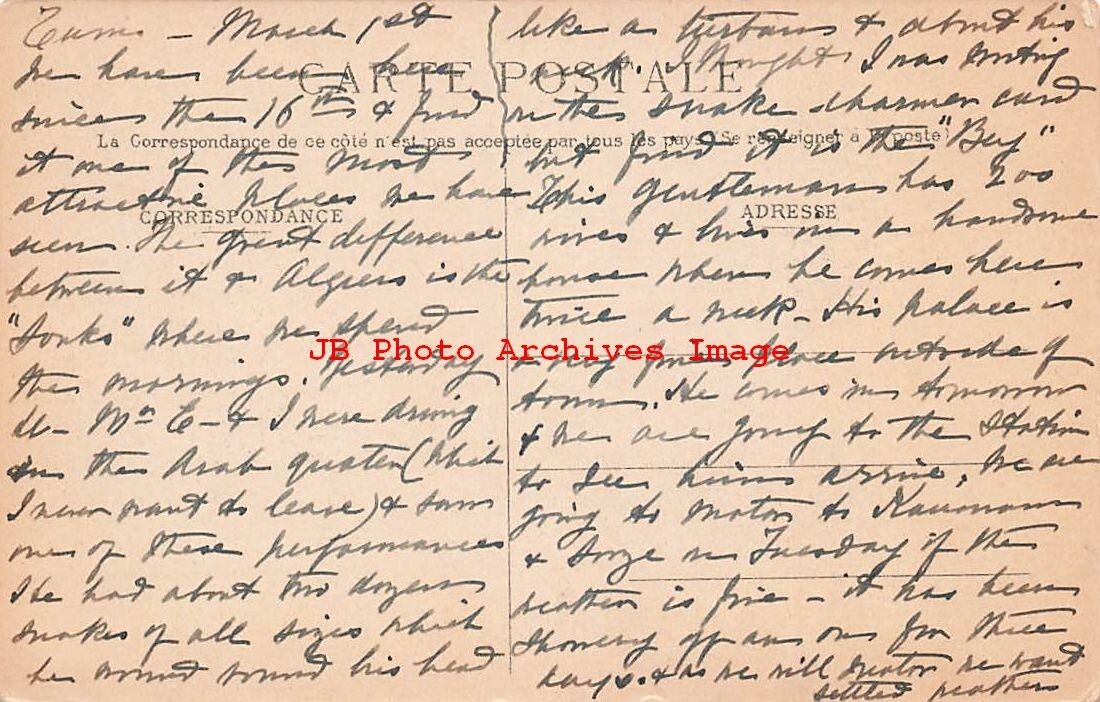 Tunis – March 1st
We have been here
since the 16th & find
it one of the most
attractive places we have
seen. The great difference
between it & Algiers is the
"Souks" where we spend
the mornings. Yesterday
Mrs E – & I were driving
in the Arab quater (which
I never want to leave) & saw
one of these performances
He had about two dozen
snakes of all sizes which
he wound round his head
like a turban & about his
neck. I thought I was writing
on the snake charmer card
but find it is the "Bey"
This gentleman has 200
wives & lives in a handsome
house when he comes here
twice a week – His palace is
a very fine place outside of
town. He comes in tomorrow
& we are going to the station
to see him arrive. We are
going to motor to Kairouan
& Sousse on Tuesday if the
weather is fine – it has been
showery off and on for three
days. & as we will motor we want
settled weather
CARTE POSTALE
La Correspondance de ce côté n'est pas acceptée par tous les pays (Se renseigner à la poste)
CORRESPONDANCE
ADRESSE
JB Photo Archives Image